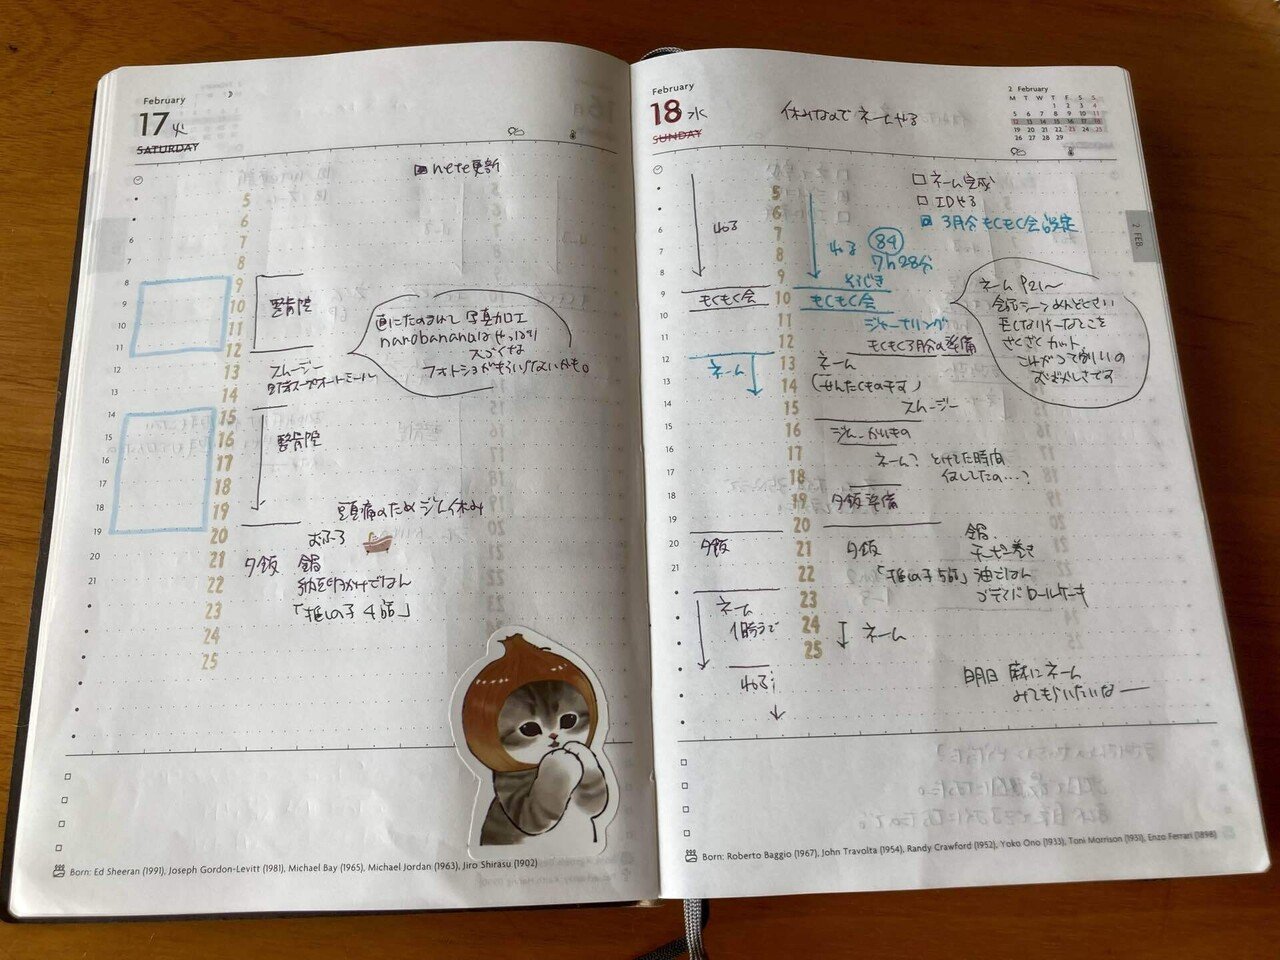 February
17 火
SATURDAY
note更新
整骨院
画にたのまれて写真加工
nanobananaはやっぱり
スゴイなぁ
フォトショがもういらないかも。
スムージー
整骨院
頭痛のためジム休み
おふろ
夕飯 鍋
納豆卵かけごはん
「推しの子 4話」
5
6
7
8
9
10
11
12
13
14
15
16
17
18
19
20
21
22
23
24
25
8
9
10
11
12
13
14
15
16
17
18
19
20
21
Born: Ed Sheeran (1991), Joseph Gordon-Levitt (1981), Michael Bay (1965), Michael Jordan (1963), Jiro Shirasu (1902)
February
18 水
SUNDAY
休みなので ネームやる
2 February
M T W T F S S
1 2 3 4
5 6 7 8 9 10 11
12 13 14 15 16 17 18
19 20 21 22 23 24 25
26 27 28 29
2 FEB.
ネーム完成
IDやる
3月分もくもく会設定
ねる
ねる 84
7h28分
そうじき
もくもく会
もくもく会
ジャーナリング
もくもく3月分の準備
ネーム P21〜
会話シーンめんどくさい
さくさくカット、
ネーム
ネーム
(せんたくものほす)
スムージー
ジム、かいもの
ネーム? とけてた時間
何してたの…?
夕飯準備
夕飯
夕飯
「推しの子5話」
鍋、
チーズ巻き
油ごはん
ロールケーキ
ネーム
1時まで
ネーム
ねる
明日 麻にネーム
みてもらいたいなー
5
6
7
8
9
10
11
12
13
14
15
16
17
18
19
20
21
22
23
24
25
8
9
10
11
12
13
14
15
16
17
18
19
20
21
Born: Roberto Baggio (1967), John Travolta (1954), Randy Crawford (1952), Yoko Ono (1933), Toni Morrison (1931), Enzo Ferrari (1898)